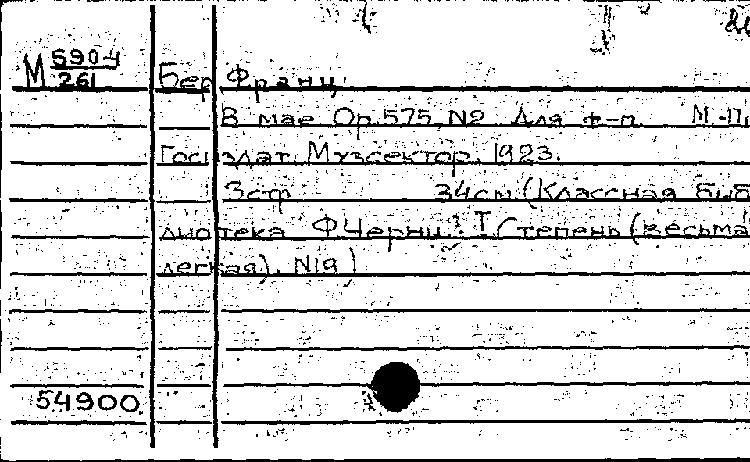 М 590-4
261
Бер Франц
В мае Ор.575, №2. Для ф-п. М.-П
Госиздат. Музсектор. 1923.
3 стр 34см (Классная биб
лиотека Ф Черни. I степень (весьма
легкая). №19)
54900